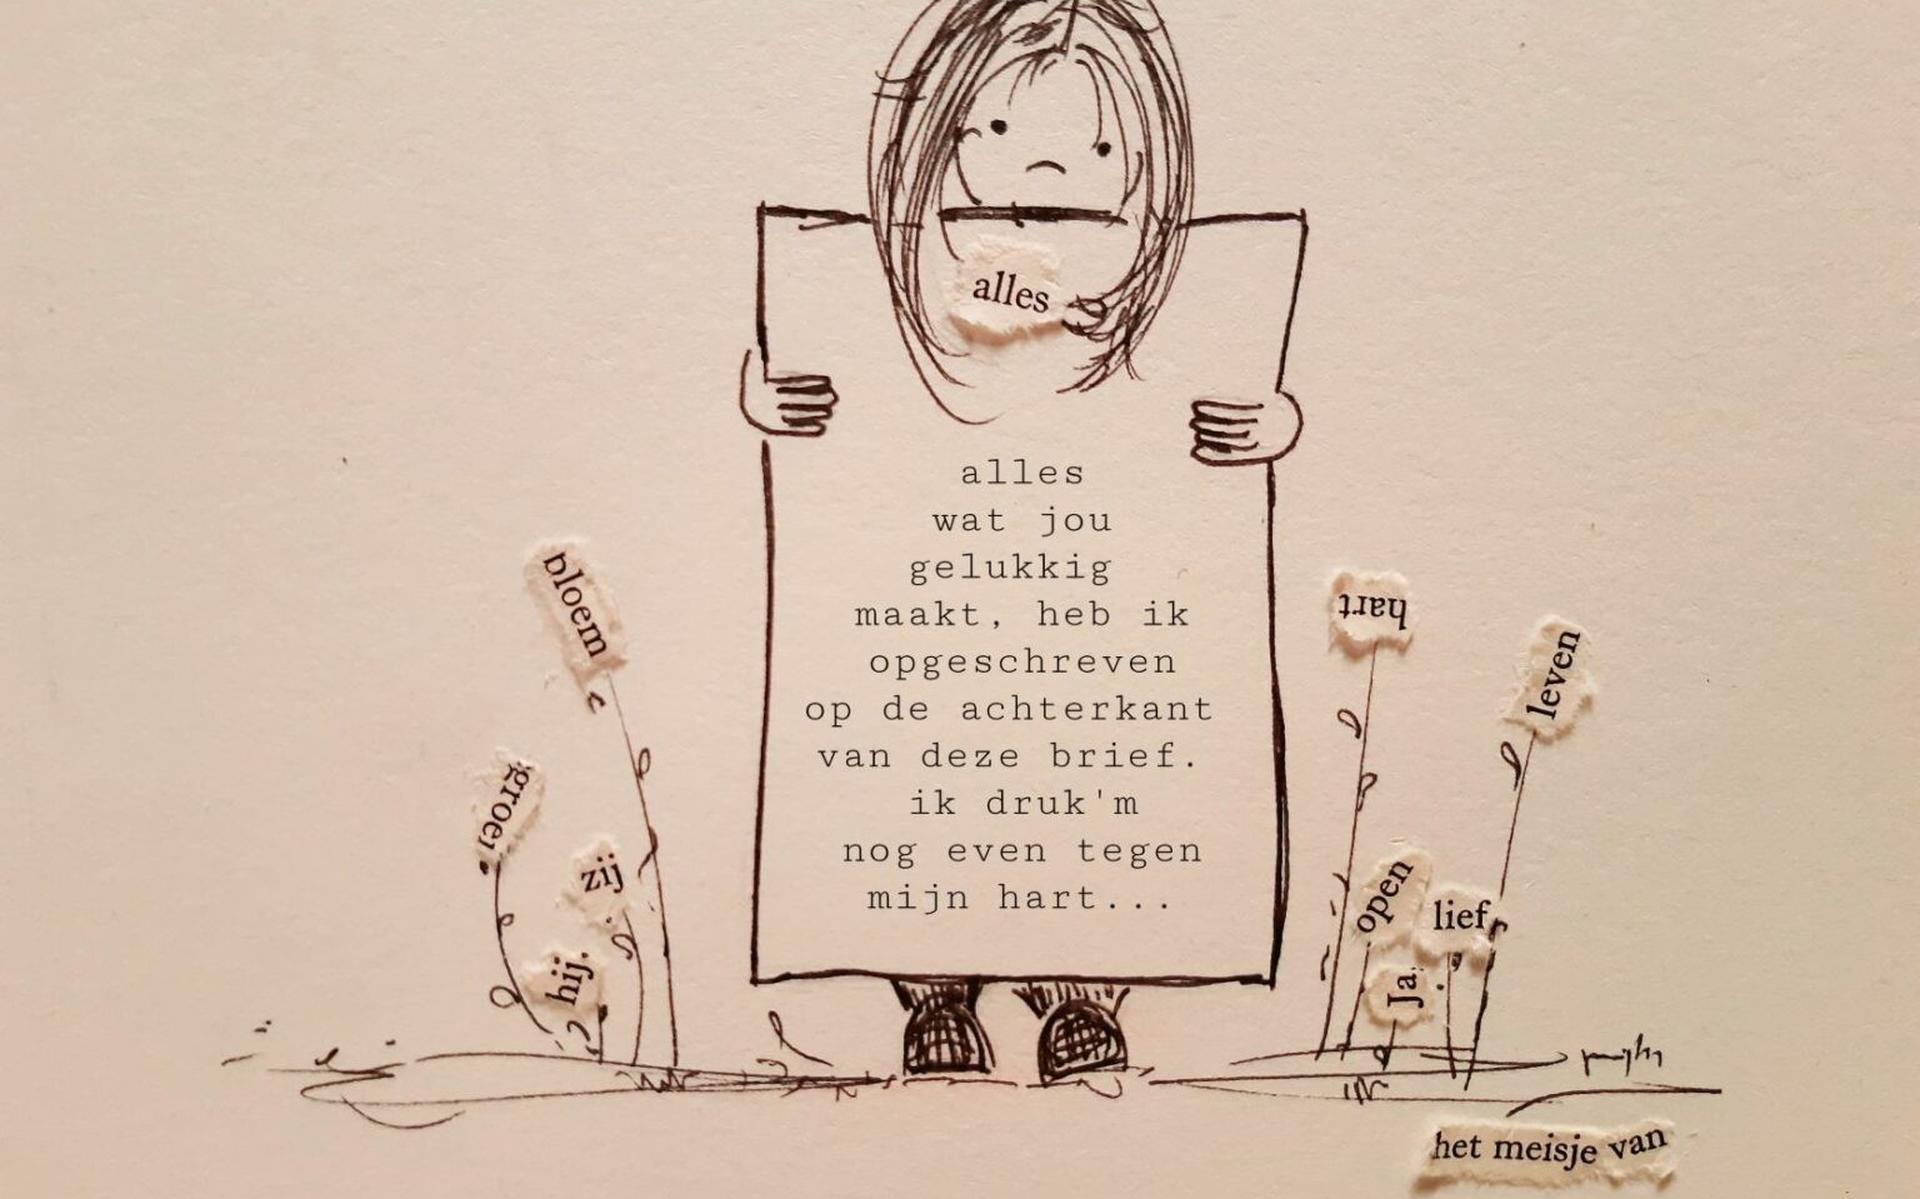 alles
alles
wat jou
gelukkig
maakt, heb ik
opgeschreven
op de achterkant
van deze brief.
ik druk'm
nog even tegen
mijn hart...
bloem
groei
zij
hij.
hart
leven
open
lief,
Ja,
het meisje van